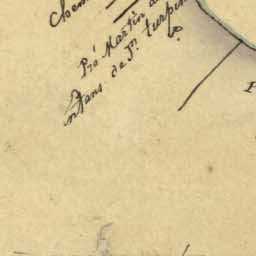 Chem
Pré Martin a
ntans de Jn. turpin
P